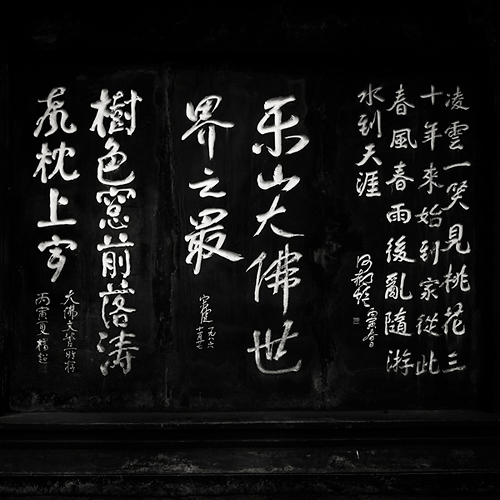 凌雲一笑見桃花三
十年來始到家從此
春風春雨後亂隨游
水到天涯
丙寅春
乐山大佛世
界之最
一九八六
樹色窓前落濤
枕上
大佛文管所存
丙寅夏